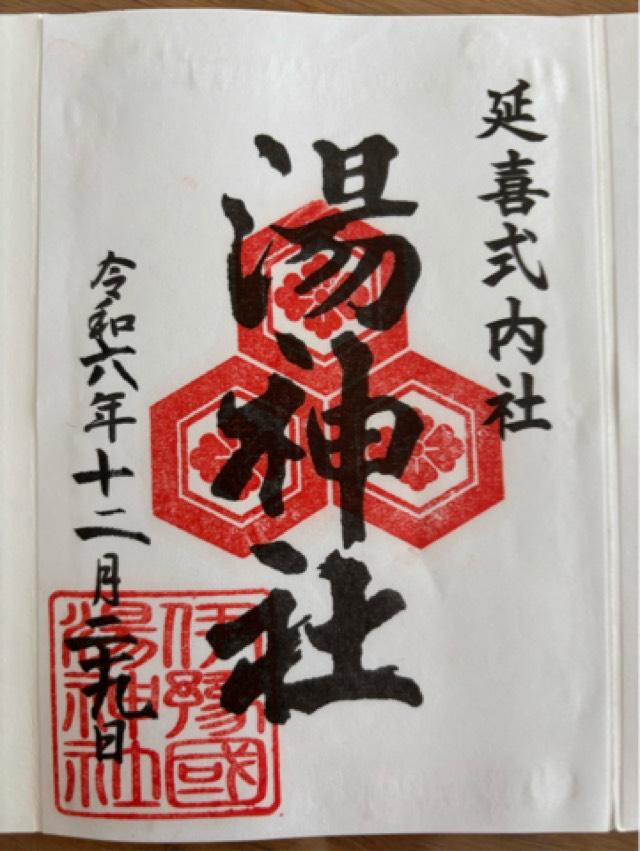 延喜式内社
湯神社
令和六年十二月二十九日
伊豫國
湯神社